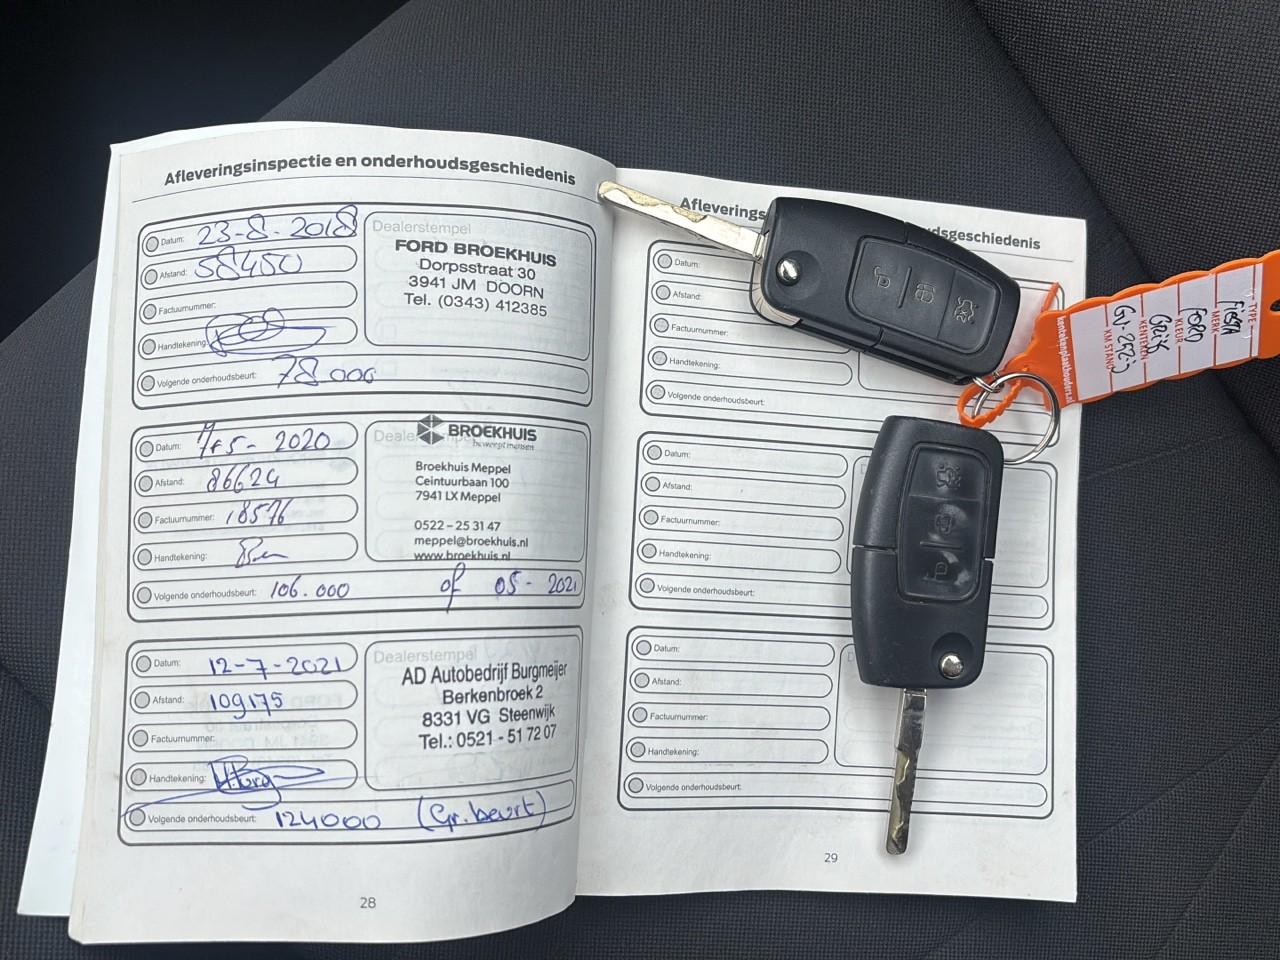 Afleveringsinspectie en onderhoudsgeschiedenis
Datum: 23-8-2018
Afstand: 58450
Factuurnummer:
Handtekening:
Volgende onderhoudsbeurt: 78 000
Dealerstempel
FORD BROEKHUIS
Dorpsstraat 30
3941 JM DOORN
Tel. (0343) 412385
Datum: 5 - 2020
Afstand: 86624
Factuurnummer: 18576
Handtekening:
Volgende onderhoudsbeurt: 106.000 of 05-2021
Dealerstempel
BROEKHUIS
beweegt mensen
Broekhuis Meppel
Ceintuurbaan 100
7941 LX Meppel
0522 - 25 31 47
meppel@broekhuis.nl
www.broekhuis.nl
Datum: 12-7-2021
Afstand: 109175
Factuurnummer:
Handtekening:
Volgende onderhoudsbeurt: 124000 (Gr. beurt)
Dealerstempel
AD Autobedrijf Burgmeijer
Berkenbroek 2
8331 VG Steenwijk
Tel.: 0521 - 51 72 07
28
Afleverings dsgeschiedenis
Datum:
Afstand:
Factuurnummer:
Handtekening:
Volgende onderhoudsbeurt:
Datum:
Afstand:
Factuurnummer:
Handtekening:
Volgende onderhoudsbeurt:
D
Datum:
Afstand:
Factuurnummer:
Handtekening:
Volgende onderhoudsbeurt:
D
29
2x
TYPE
MERK
Ford
KLEUR
Grijs
KENTEKEN
KM STAND
kentekenplaathouders.nl